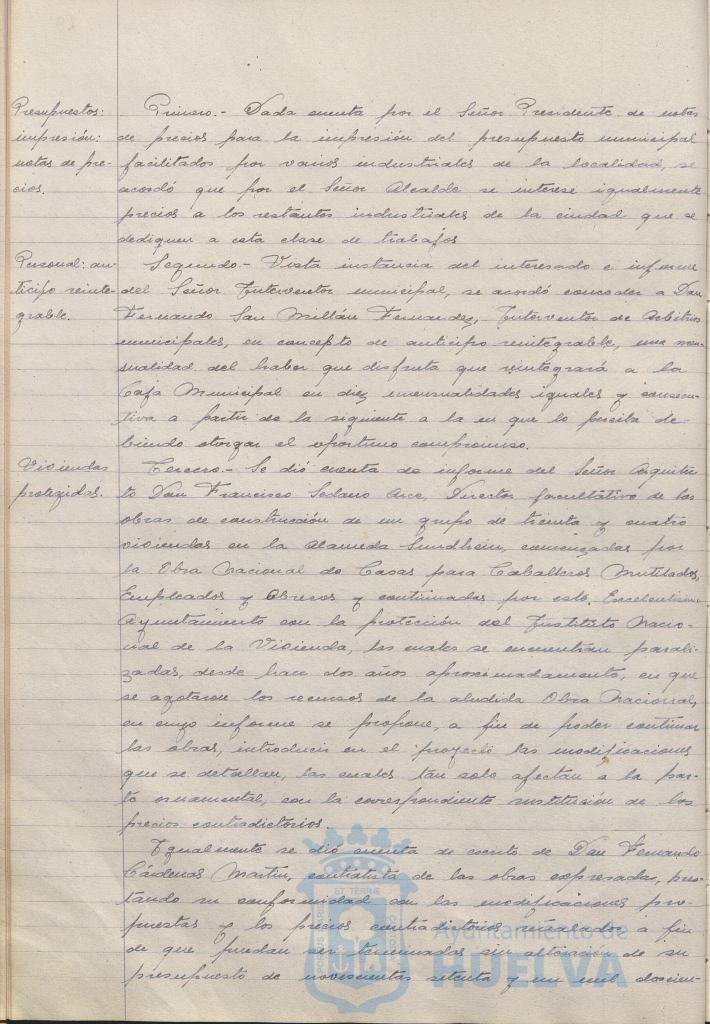 Presupuestos:
impresión:
notas de pre-
cios.
Primero.- Dada cuenta por el Señor Presidente de notas
de precios para la impresión del presupuesto municipal
facilitados por varios industriales de la localidad, se
acordó que por el Señor Alcalde se interese igualmente
precios a los restantes industriales de la ciudad que se
dediquen a esta clase de trabajos
Personal: an-
ticipo reinte-
grable.
Segundo.- Vista instancia del interesado e informe
del Señor Interventor municipal, se acordó conceder a Don
Fernando San Millán Fernandez, Interventor de Arbitrios
municipales, en concepto de anticipo reintegrable, una men-
sualidad del haber que disfruta que reintegrará a la
Caja Municipal en diez mensualidades iguales y consecu-
tiva a partir de la siguiente a la en que lo perciba de-
biendo otorgar el oportuno compromiso.
Viviendas
protegidas.
Tercero.- Se dió cuenta de informe del Señor Arquitec-
to Don Francisco Sedano Arce, Director facultativo de las
obras de construcción de un grupo de treinta y cuatro
viviendas en la Alameda Sundhein, comenzadas por
la Obra Nacional de Casas para Caballeros Mutilados,
Empleados y Obreros y continuadas por este Excelentísimo
Ayuntamiento con la protección del Instituto Nacio-
nal de la Vivienda, las cuales se encuentran parali-
zadas, desde hace dos años aproximadamente, en que
se agotaron los recursos de la aludida Obra Nacional,
en cuyo informe se propone, a fin de poder continuar
las obras, introducir en el proyecto las modificaciones
que se detallan, las cuales tan solo afectan a la par-
te ornamental, con la correspondiente sustitución de los
precios contradictorios.
Igualmente se dió cuenta de escrito de Don Fernando
Cárdenas Martin, contratista de las obras expresadas, pres-
tando su conformidad con las modificaciones pro-
puestas y los precios contradictorios señalados a fin
de que puedan ser terminadas sin alteración de su
presupuesto de novecientas setenta y un mil doscien-
ET TERRÆ
Ayuntamiento de
HUELVA